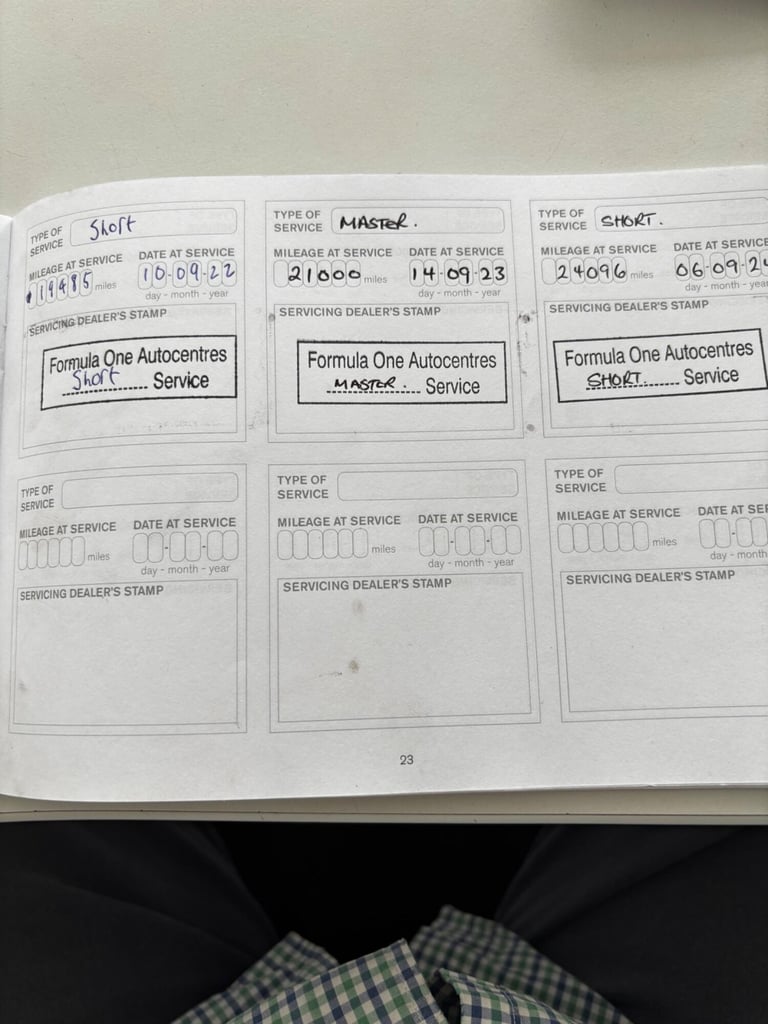 TYPE OF SERVICE Short
MILEAGE AT SERVICE DATE AT SERVICE
19485 miles 10-09-22
day - month - year
SERVICING DEALER'S STAMP
Formula One Autocentres
Short Service
TYPE OF SERVICE MASTER.
MILEAGE AT SERVICE DATE AT SERVICE
21000 miles 14-09-23
day - month - year
SERVICING DEALER'S STAMP
Formula One Autocentres
MASTER. Service
TYPE OF SERVICE SHORT.
MILEAGE AT SERVICE DATE AT SERVICE
24096 miles 06-09-2
day - month - year
SERVICING DEALER'S STAMP
Formula One Autocentres
SHORT. Service
TYPE OF SERVICE
MILEAGE AT SERVICE DATE AT SERVICE
miles
day - month - year
SERVICING DEALER'S STAMP
TYPE OF SERVICE
MILEAGE AT SERVICE DATE AT SERVICE
miles
day - month - year
SERVICING DEALER'S STAMP
TYPE OF SERVICE
MILEAGE AT SERVICE DATE AT SER
miles
day - month
SERVICING DEALER'S STAMP
23